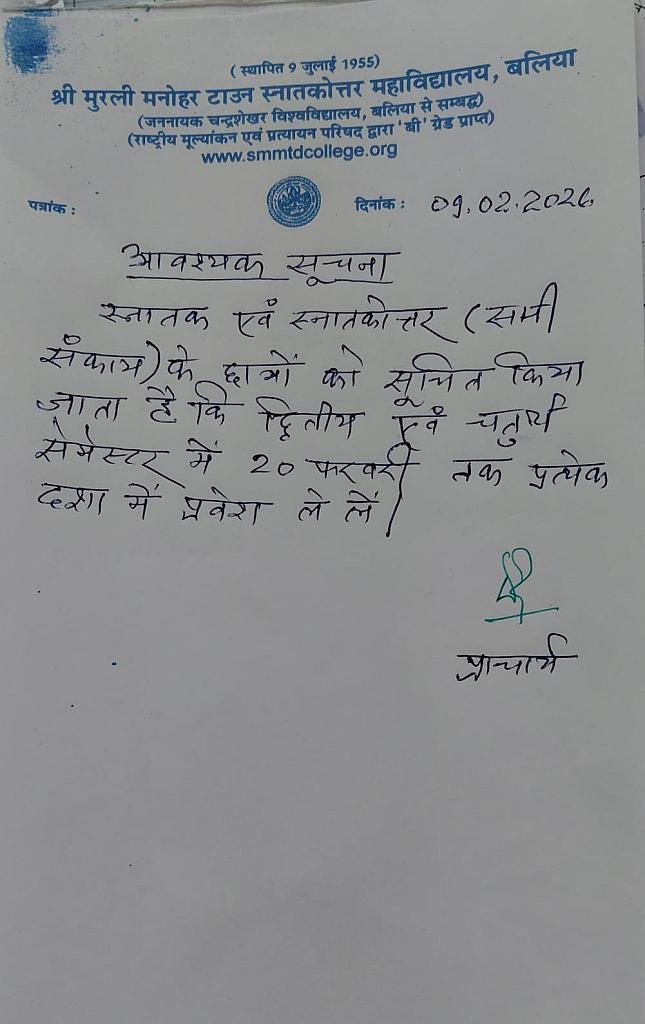 ( स्थापित 9 जुलाई 1955)
श्री मुरली मनोहर टाउन स्नातकोत्तर महाविद्यालय, बलिया
(जननायक चन्द्रशेखर विश्वविद्यालय, बलिया से सम्बद्ध)
(राष्ट्रीय मूल्यांकन एवं प्रत्यायन परिषद द्वारा 'बी' ग्रेड प्राप्त)
www.smmtdcollege.org
पत्रांक : दिनांक : 09.02.2026.
आवश्यक सूचना
स्नातक एवं स्नातकोत्तर (सभी
संकाय) के छात्रों को सूचित किया
जाता है कि द्वितीय एवं चतुर्थ
सेमेस्टर में 20 फरवरी तक प्रत्येक
दशा में प्रवेश ले लें।
प्राचार्य